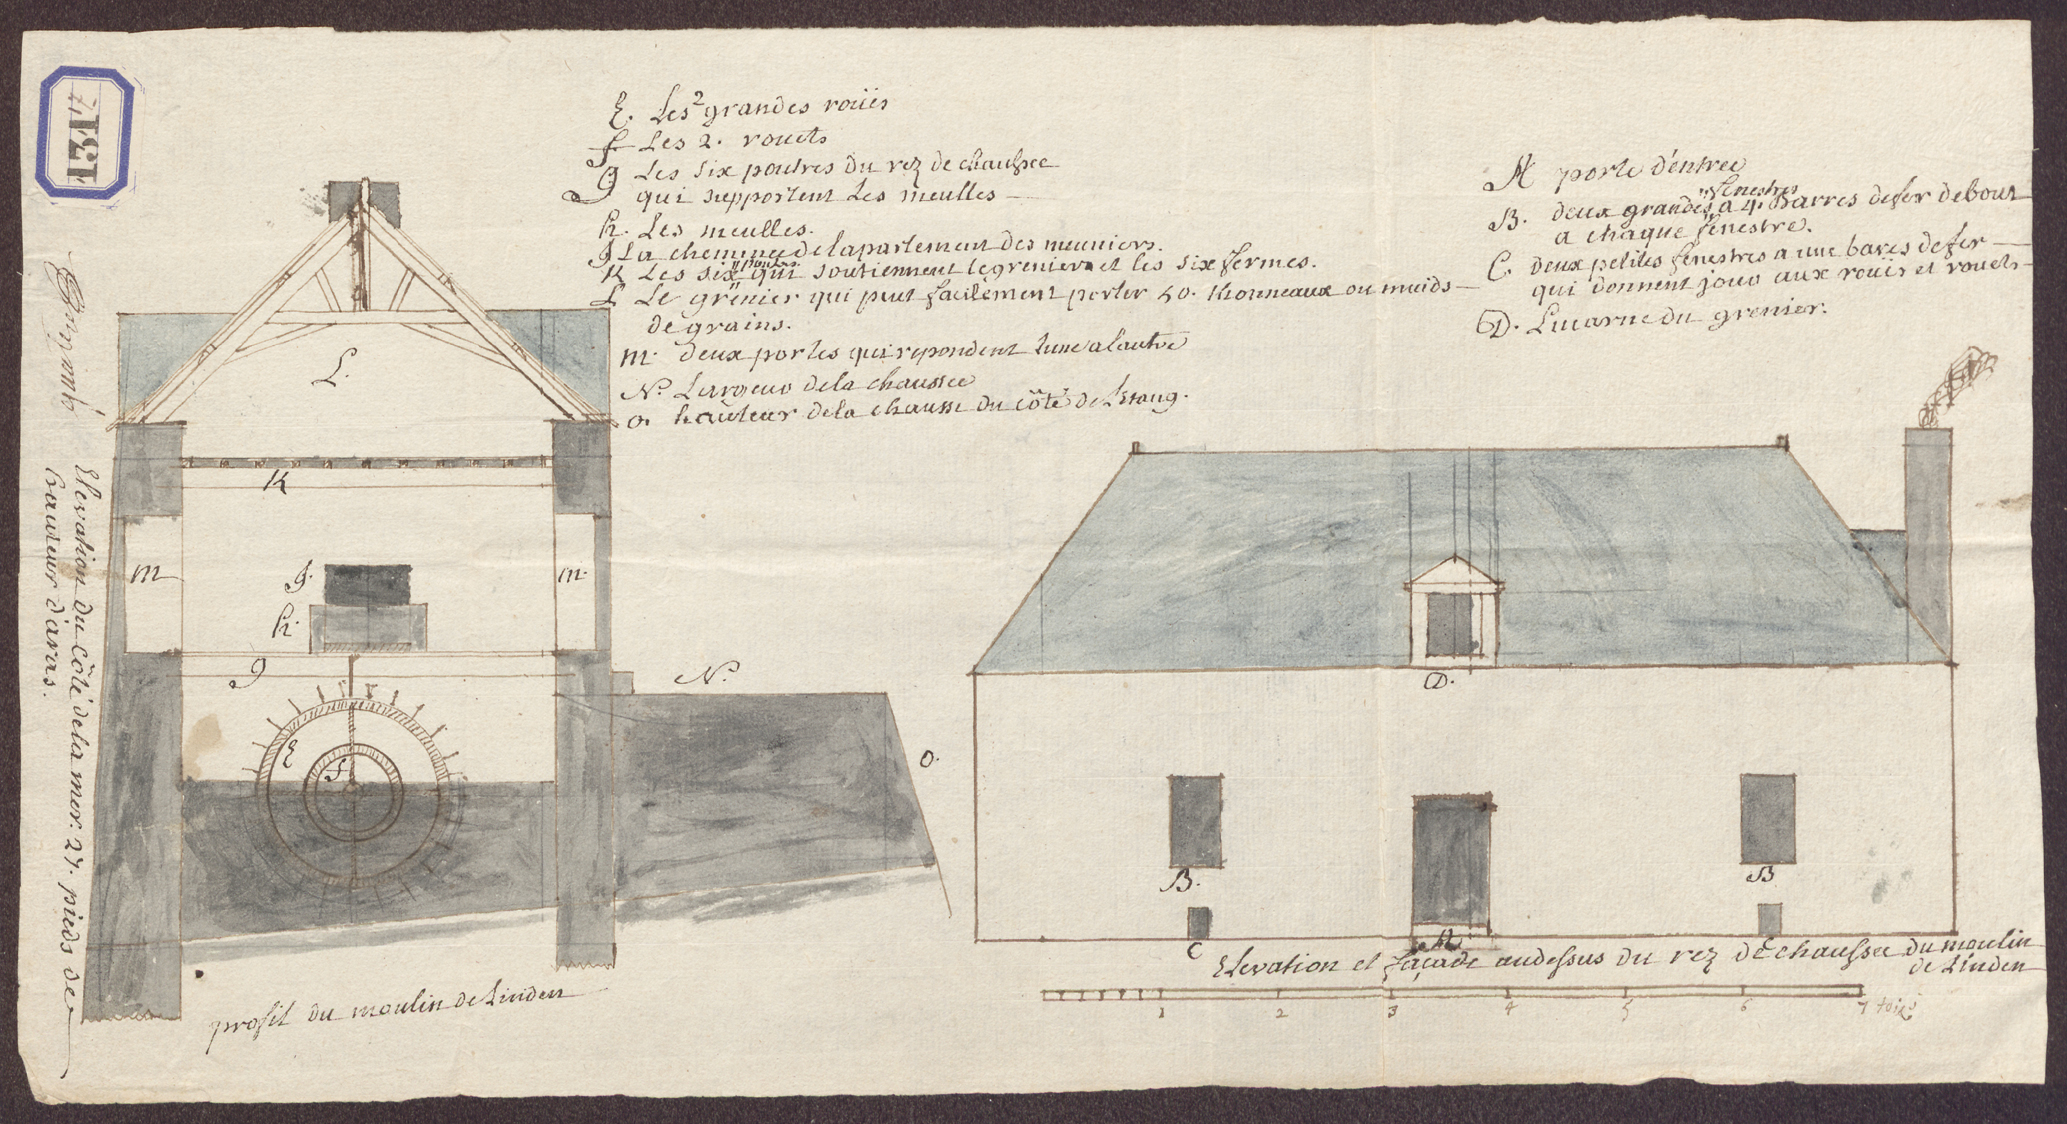 E. Les 2 grandes roües
f Les 2. rouets
g Les six poutres du rez de chaussee
qui supportent Les meulles
h. Les meulles.
J La chemmee de lapartement des meuniers.
K Les six poutres qui soutiennent le grenier et les six fermes.
L Le grenier qui peut facilement porter 50. thonneaux ou muids
de grains.
m. deux portes qui repondent lune a lautre
N. Largeur de la chaussee
O. hauteur de la chausse du côté de L'Etang.
A porte d'entree
B. deux grandes fenestres a 4. Barres de fer debout
a chaque fenestre.
C. deux petites fenestres a une bares de fer
qui donnent jour aux roües et rouets
D. Lucarne du grenier.
L.
K
m
m.
J.
h.
g
N.
E
f
O.
D.
B.
B
C
A
C
Elevation du côté de la mer. 27. pieds de
hauteur d'aras.
profil du moulin de Linden
Elevation et façade audessus du rez de chaussee du moulin
de Linden
1 2 3 4 5 6 7 toises